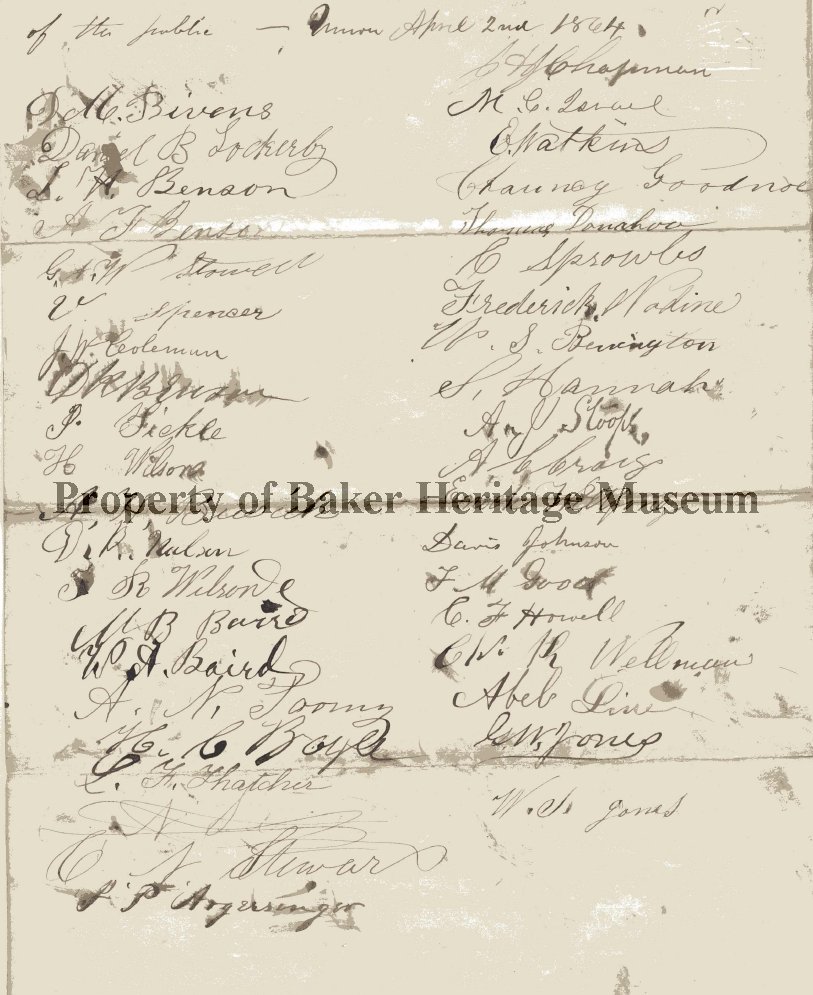 of the public — Union April 2nd 1864.
Chapman
M. Bivens
M. C. Israel
Daniel B Lockerby
E. Watkins
L. H. Benson
Chauncy Goodnoe
A F Benson
Thomas Donahoo
G. W Stowell
E Sprowls
Spencer
Frederick Nodine
J. W. Coleman
W. S. Bennington
K Benson
S. Hannah
P. Fickle
A. J Sloop
H Wilson
A C Craig
Property of Baker Heritage Museum
D. R. 
Davis Johnson
S R Wilson
F M Good
M B Baird
C. F Howell
W. A. Baird
W. R Wellman
A. N. Toomy
Abel Line
H. C Boyd
G. W. Jones
L. F. Thatcher
W. S. jones
N Stewart
P Argersinger